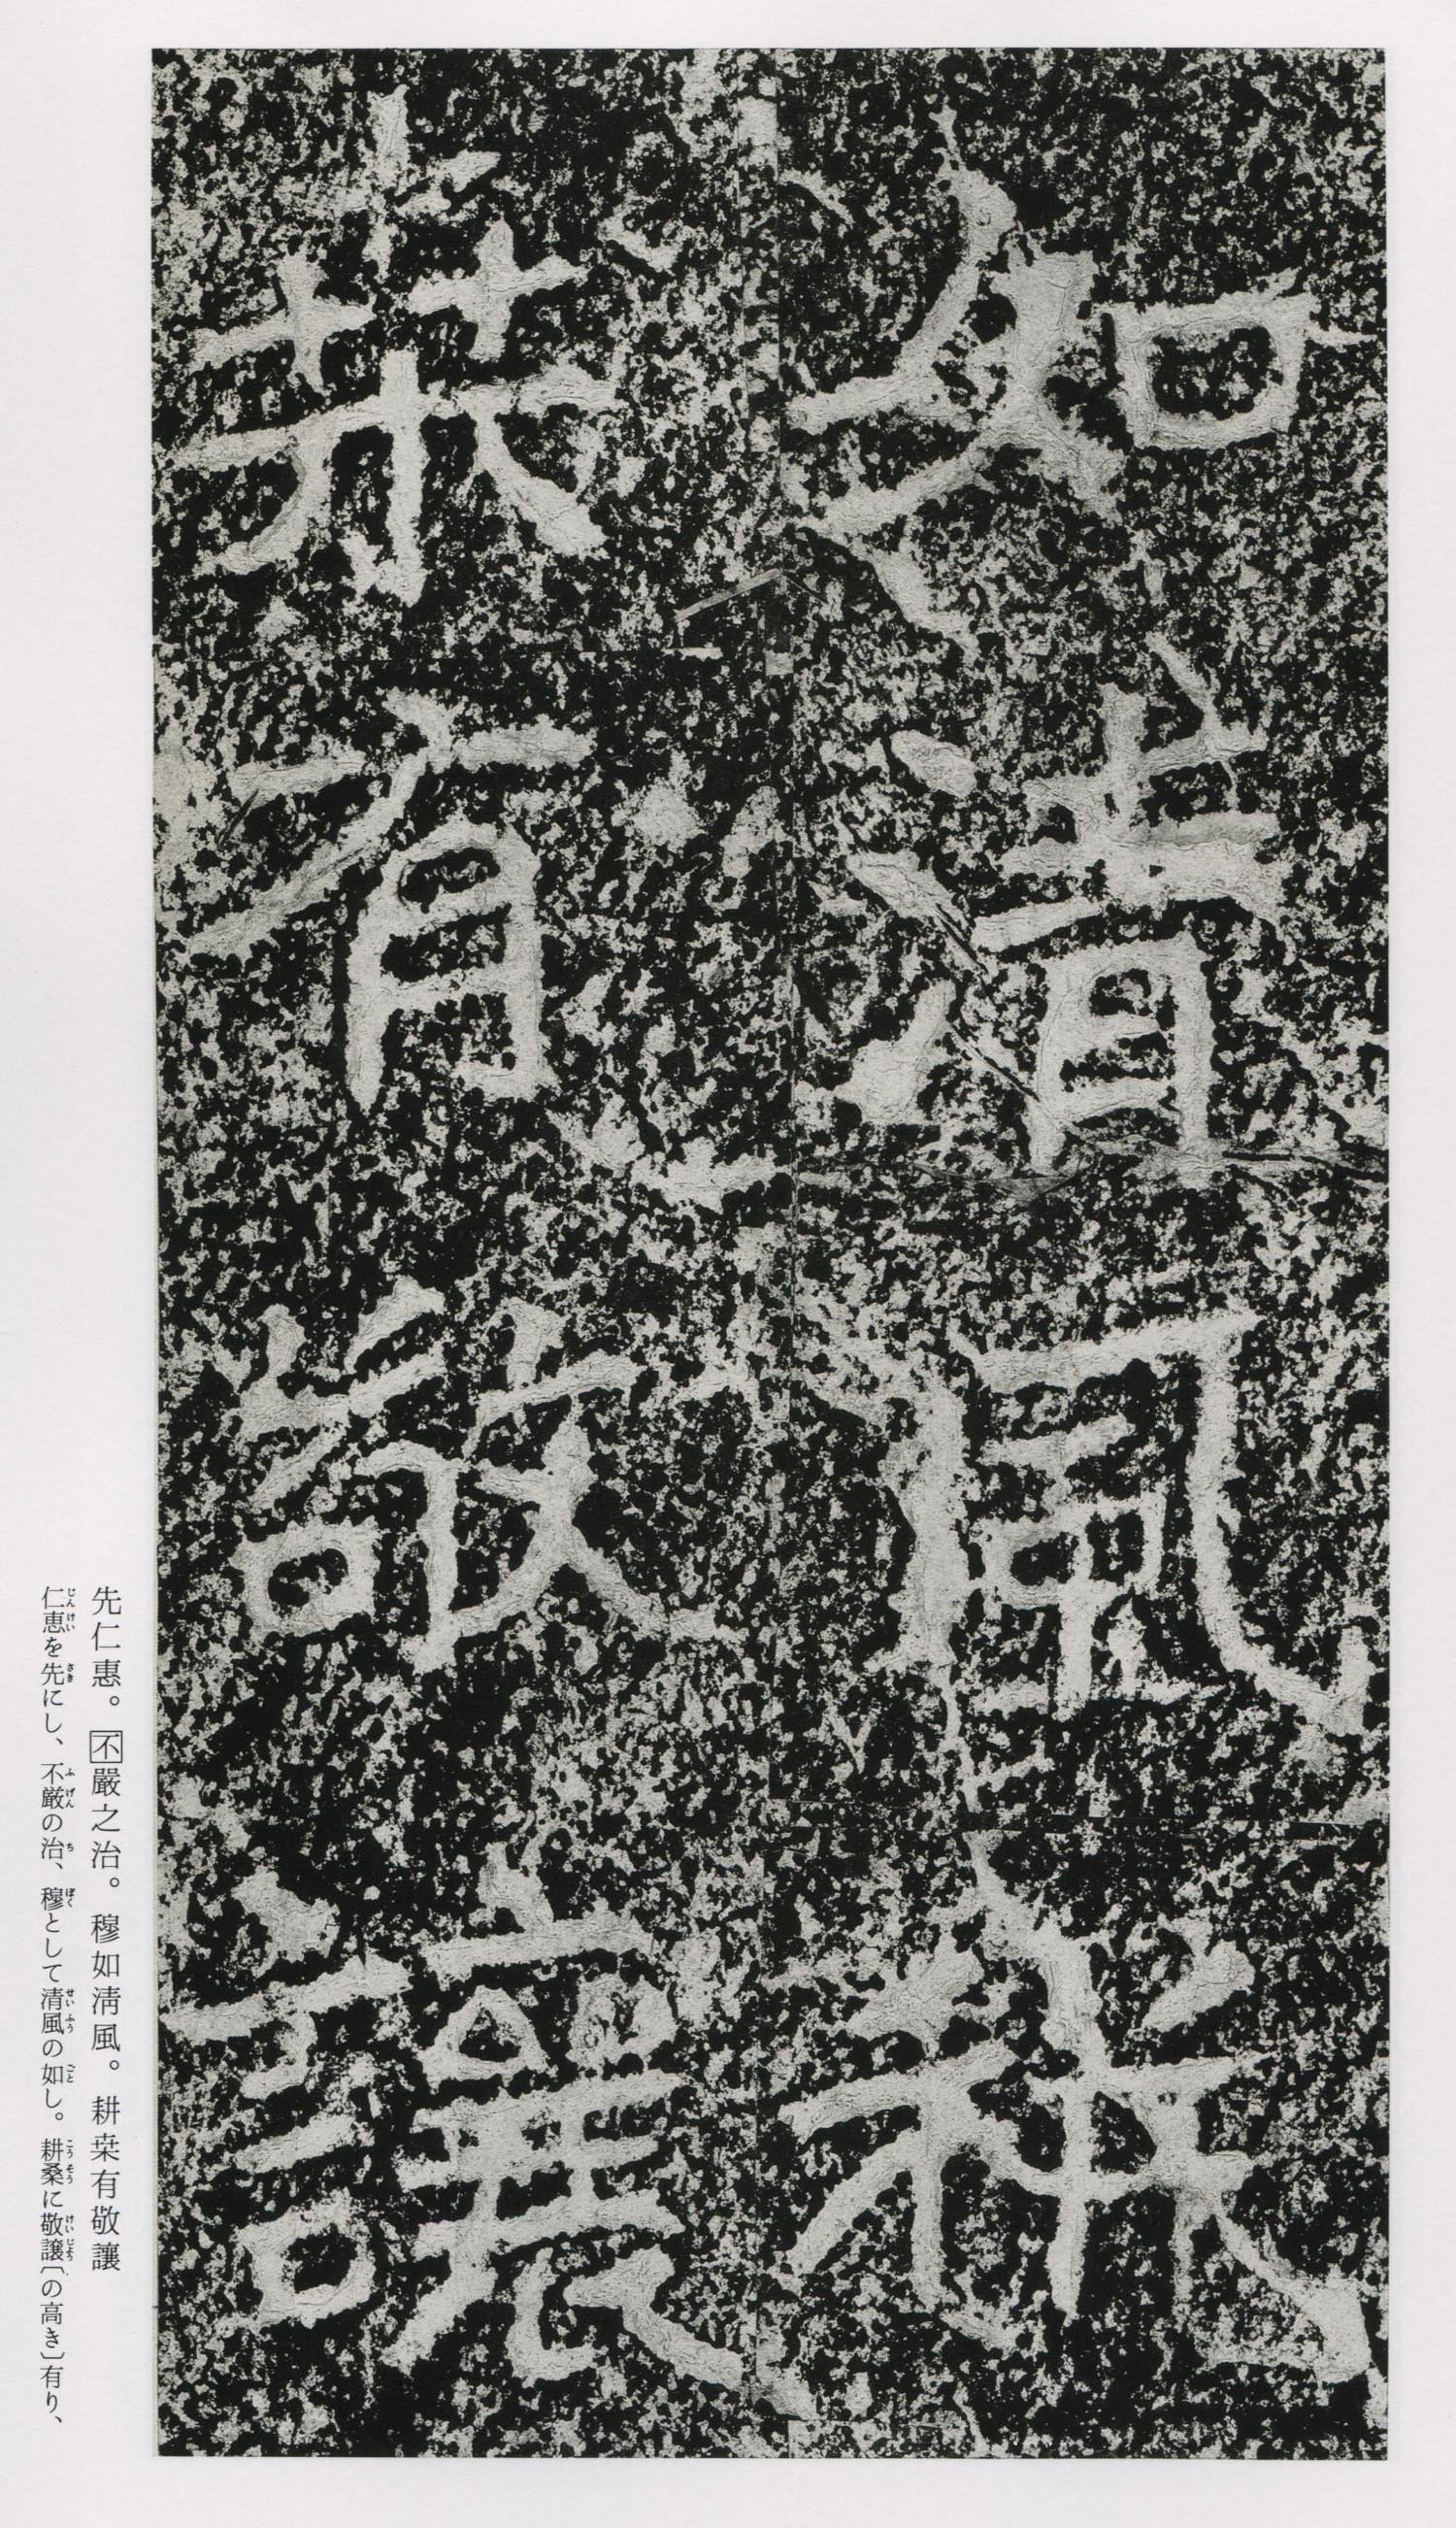 如清風耕
桒有敬讓
先仁惠。不嚴之治。穆如淸風。耕桒有敬讓
仁恵を先にし、不厳の治、穆として清風の如し。耕桑に敬譲〔の高き〕有り、